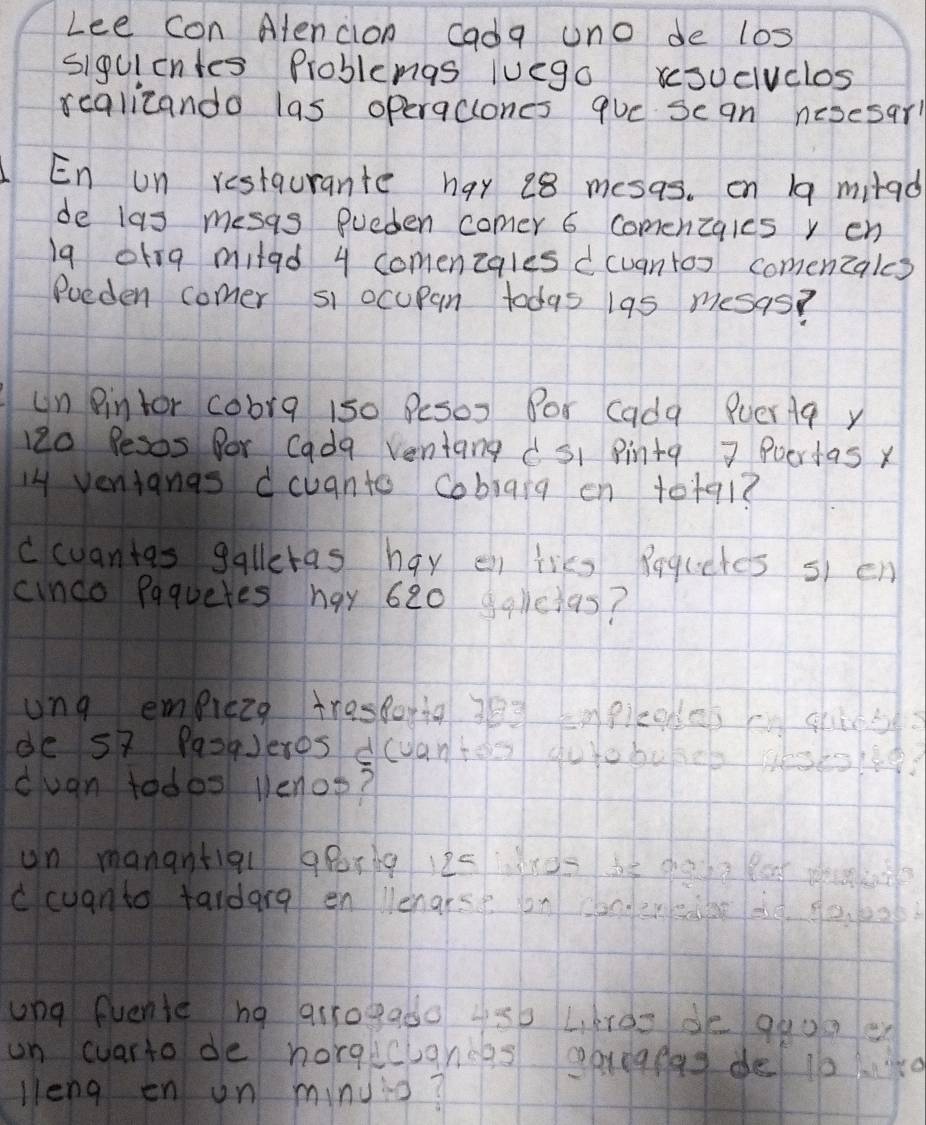 Lee con Atencion cada uno de los
siguientes Problemas luego resuelvelos
realizando las operaciones que sean nesesari
1 En un restaurante hay 28 mesas. en la mitad
de las mesas Pueden comer 6 comenzales y en
la otra mitad 4 comenzales ¿cuantos comenzales
Pueden comer si ocupan todas las mesas?
un Pintor cobra 150 Pesos Por cada Puerta y
120 Pesos Por cada ventana ¿si Pinta 7 Puertas y
14 ventanas ¿cuanto cobrara en total?
¿cuantas galletas hay en tres Paquetes si en
cinco Paquetes hay 620 galletas?
una empieza trasporta empleados en
de 57 Pasajeros ¿cuantos autobuses
¿van todos llenos?
un manantial aporta 125 litros de agua Por
¿cuanto tardara en llenarse un contenedor de
una fuente ha arrogado 450 Litros de agua
un cuarto de hora ¿cuantas garrafas de 10
llena en un minuto?